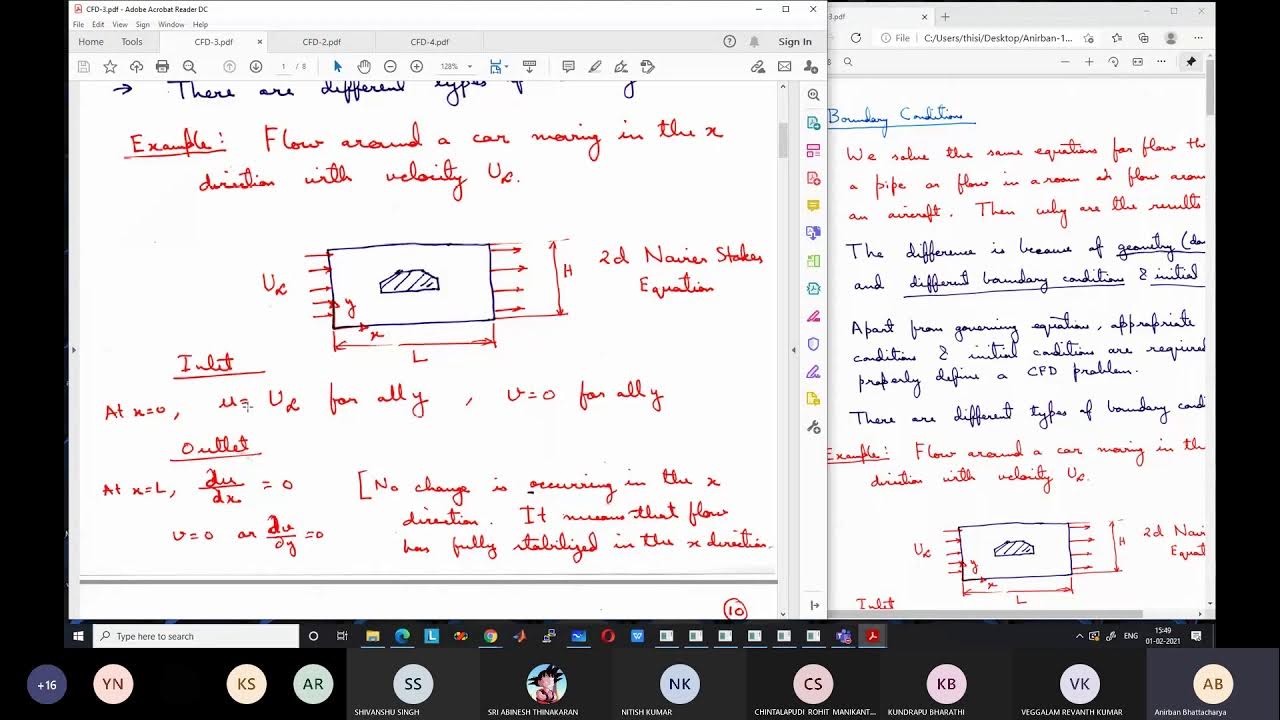 CFD-3.pdf - Adobe Acrobat Reader DC
File Edit View Sign Window Help
Home Tools CFD-3.pdf × CFD-2.pdf CFD-4.pdf Sign In
1 / 8 128%
→ There are different types of
Example: Flow around a car moving in the x
direction with velocity U∝.
U∝
y
x
H
L
2d Navier Stokes
Equation
Inlet
At x=0, u= U∝ for all y , v=0 for all y
Outlet
At x=L, ∂u/∂x = 0 [No change is occurring in the x
direction. It means that flow
v=0 or ∂v/∂y =0 has fully stabilized in the x direction.
10
3.pdf
File C:/Users/thisi/Desktop/Anirban-1...
Boundary Conditions
We solve the same equations for flow th
a pipe or flow in a room or flow arou
an aircraft. Then why are the results
The difference is because of geometry (do
and different boundary condition & initial
Apart from governing equation, appropriate
conditions & initial conditions are require
properly define a CFD problem.
There are different types of boundary cond
Example: Flow around a car moving in th
direction with velocity U∝.
U∝
y
x
H
L
2d Navi
Equati
Inlet
Type here to search
ENG
15:49
01-02-2021
+16 YN KS AR SS NK CS KB VK AB
SHIVANSHU SINGH
SRI ABINESH THINAKARAN
NITISH KUMAR
CHINTALAPUDI ROHIT MANIKANT...
KUNDRAPU BHARATHI
VEGGALAM REVANTH KUMAR
Anirban Bhattacharya